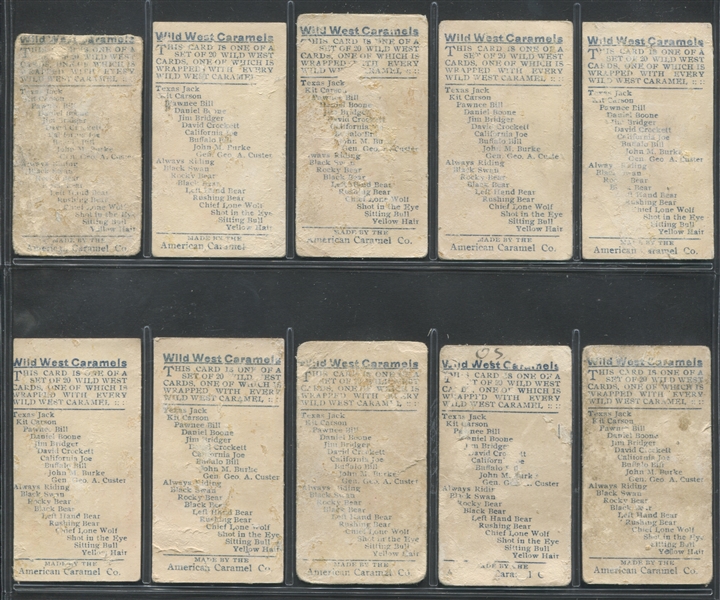 Wild West Caramels
THIS CARD IS ONE OF A
SET OF 20 WILD WEST
CARDS, ONE OF WHICH IS
WRAPPED WITH EVERY
WILD WEST CARAMEL
Texas Jack
Kit Carson
Buffalo Bill
Gen. Geo. A. Custer
Left Hand Bear
Rushing Bear
Chief Lone Wolf
Shot in the Eye
Sitting Bull
Yellow Hair
MADE BY THE
American Caramel Co.
Wild West Caramels
THIS CARD IS ONE OF A
SET OF 20 WILD WEST
CARDS, ONE OF WHICH IS
WRAPPED WITH EVERY
WILD WEST CARAMEL
Texas Jack
Kit Carson
Pawnee Bill
Daniel Boone
Jim Bridger
David Crockett
California Joe
Buffalo Bill
John M. Burke
Gen. Geo. A. Custer
Always Riding
Black Swan
Rocky Bear
Black Bear
Left Hand Bear
Rushing Bear
Chief Lone Wolf
Shot in the Eye
Sitting Bull
Yellow Hair
MADE BY THE
American Caramel Co.
Wild West Caramels
THIS CARD IS ONE OF A
SET OF 20 WILD WEST
CARDS, ONE OF WHICH IS
WRAPPED WITH EVERY
WILD W CARAMEL : ::
Texas Jack
Kit Carson
Pawnee Bill
Daniel Boone
Bridger
David Crockett
California
Buffalo Bill
John M. Bu
Gen. Geo. Custer
Always Riding
Black Swan
Rocky Bear
Black Bear
Left Hand Bear
Rushing Bear
Chief Lone Wolf
Shot in the Eye
Sitting Bull
Yellow Hair
MADE BY THE
American Caramel Co.
Wild West Caramels
THIS CARD IS ONE OF A
SET OF 20 WILD WEST
CARDS, ONE OF WHICH IS
WRAPPED WITH EVERY
WILD WEST CARAMEL :: ::
Texas Jack
Kit Carson
Pawnee Bill
Daniel Boone
Jim Bridger
David Crockett
California Joe
Buffalo Bill
John M. Burke
Gen. Geo. A. Custer
Always Riding
Black Swan
Rocky Bear
Black Bear
Left Hand Bear
Rushing Bear
Chief Lone Wolf
Shot in the Eye
Sitting Bull
Yellow Hair
MADE BY THE
American Caramel Co.
Wild West Caramels
THIS CARD IS ONE OF A
SET OF 20 WILD WEST
CARDS, ONE OF WHICH IS
WRAPPED WITH EVERY
WILD WEST CARAMEL :: ::
Texas Jack
Kit Carson
Pawnee Bill
Daniel Boone
Bridger
David Crockett
California Joe
Buffalo Bill
John M. Burke
Gen. Geo. A. Custer
Always Riding
Black Swan
Bear
Bear
Hand Bear
Rushing Bear
Chief Lone Wolf
Shot in the Eye
Sitting Bull
Yellow Hair
MADE BY THE
American Caramel Co.
Wild West Caramels
THIS CARD IS ONE OF A
SET OF 20 WILD WEST
CARDS, ONE OF WHICH IS
WRAPPED WITH EVERY
WILD WEST CARAMEL :: ::
Texas Jack
Kit Carson
Pawnee Bill
Daniel Boone
Jim Bridger
David Crockett
California Joe
Buffalo Bill
John M. Burke
Gen. Geo. A. Custer
Always Riding
Black Swan
Rocky Bear
Black Bear
Left Hand Bear
Rushing Bear
Chief Lone Wolf
Shot in the Eye
Sitting Bull
Yellow Hair
MADE BY THE
American Caramel Co.
Wild West Caramels
THIS CARD IS ONE OF A
SET OF 20 WILD WEST
CARDS, ONE OF WHICH IS
WRAPPED WITH EVERY
WILD WEST CARAMEL :: ::
Texas Jack
Kit Carson
Pawnee Bill
Daniel Boone
Jim Bridger
Crockett
California Joe
Buffalo Bill
John M. Burke
Gen. Geo. A. Custer
Always Riding
Black Swan
Rocky Bear
Black Bear
Left Hand Bear
Rushing Bear
Chief Lone Wolf
Shot in the Eye
Sitting Bull
Yellow Hair
MADE BY THE
American Caramel Co.
Wild West Caramels
THIS CARD IS ONE OF A
SET OF 20 WILD WEST
CARDS, ONE OF WHICH IS
WRAPPED WITH EVERY
WILD WEST CARAMEL
Texas Jack
Kit Carson
Pawnee Bill
Daniel Boone
Jim Bridger
David Crockett
California Joe
Buffalo Bill
John M. Burke
Gen. Geo. A. Custer
Always Riding
Black Swan
Rocky Bear
Black Bear
Left Hand Bear
Rushing Bear
Chief Lone Wolf
Shot in the Eye
Sitting Bull
Yellow Hair
MADE BY THE
American Caramel Co.
OS
Wild West Caramels
CARD IS ONE OF A
SET OF 20 WILD WEST
CARDS, ONE OF WHICH IS
WRAPPED WITH EVERY
WILD WEST CARAMEL :: ::
Texas Jack
Kit Carson
Pawnee Bill
Daniel Boone
Jim Bridger
David Crockett
California Joe
Buffalo
John M. Burke
Gen. Geo. A. Custer
Always Ridin
Black Swan
Rocky Bear
Black Bear
Left Hand Bear
Rushing Bear
Chief Lone Wolf
Shot in the Eye
Sitting Bull
Yellow Hair
BY THE
Caramel C
Wild West Caramels
THIS CARD IS ONE OF A
SET OF 20 WILD WEST
CARDS, ONE OF WHICH IS
WRAPPED WITH EVERY
WILD WEST CARAMEL :: ::
Texas Jack
Kit Carson
Pawnee Bill
Daniel Boone
Jim Bridger
David Crockett
California Joe
Buffalo Bill
John M. Burke
Gen. Geo. A. Custer
Always Riding
Black Swan
Rocky Bear
Black Bear
Left Hand Bear
Rushing Bear
Chief Lone Wolf
Shot in the Eye
Sitting Bull
Yellow Hair
MADE BY THE
American Caramel Co.